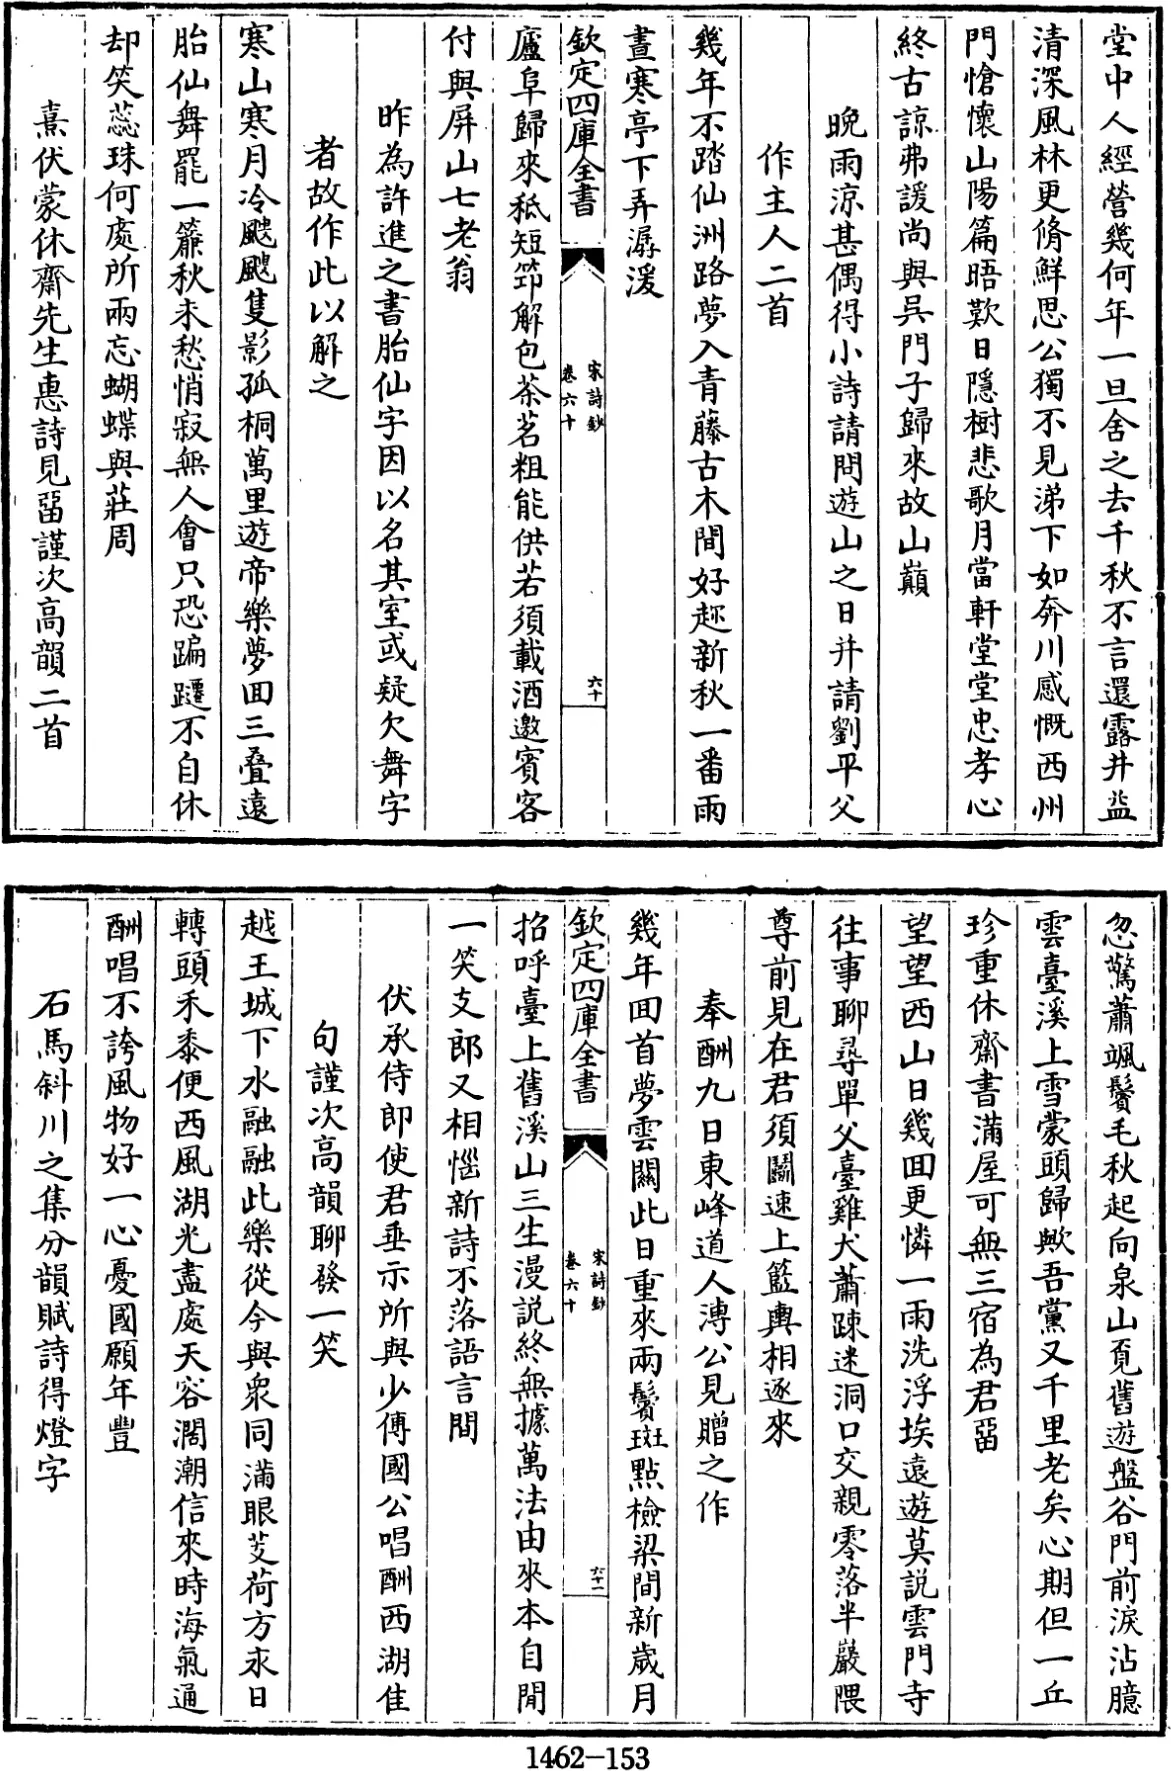 堂中人經營幾何年一旦舍之去千秋不言還露井益
清深風林更脩鮮思公獨不見涕下如奔川感慨西州
門愴懷山陽篇晤歎日隱樹悲歌月當軒堂堂忠孝心
終古諒弗諼尚與吳門子歸來故山巔
晚雨涼甚偶得小詩請問遊山之日并請劉平父
作主人二首
幾年不踏仙洲路夢入青藤古木間好趂新秋一番雨
晝寒亭下弄潺湲
欽定四庫全書
宋詩鈔
卷六十
六十
廬阜歸來秪短笻解包茶茗粗能供若須載酒邀賓客
付與屏山七老翁
昨為許進之書胎仙字因以名其室或疑欠舞字
者故作此以解之
寒山寒月冷颼颼隻影孤桐萬里遊帝樂夢回三叠遠
胎仙舞罷一簾秋未愁悄寂無人會只恐蹁躚不自休
却笑蕊珠何處所兩忘蝴蝶與莊周
熹伏蒙休齋先生惠詩見畱謹次高韻二首
忽驚蕭颯鬢毛秋起向泉山覓舊遊盤谷門前淚沾臆
雲臺溪上雪蒙頭歸歟吾黨又千里老矣心期但一丘
珍重休齋書滿屋可無三宿為君畱
望望西山日幾回更憐一雨洗浮埃遠遊莫説雲門寺
往事聊尋單父臺雞犬蕭踈迷洞口交親零落半巖隈
尊前見在君須鬭速上籃輿相逐來
奉酬九日東峰道人溥公見贈之作
幾年回首夢雲關此日重來兩鬢斑點檢梁間新歲月
欽定四庫全書
宋詩鈔
卷六十
六十一
招呼臺上舊溪山三生漫説終無據萬法由來本自閒
一笑支郎又相惱新詩不落語言間
伏承侍郎使君垂示所與少傅國公唱酬西湖佳
句謹次高韻聊發一笑
越王城下水融融此樂從今與衆同滿眼芰荷方永日
轉頭禾黍便西風湖光盡處天容濶潮信來時海氣通
酬唱不誇風物好一心憂國願年豐
石馬斜川之集分韻賦詩得燈字
1462-153